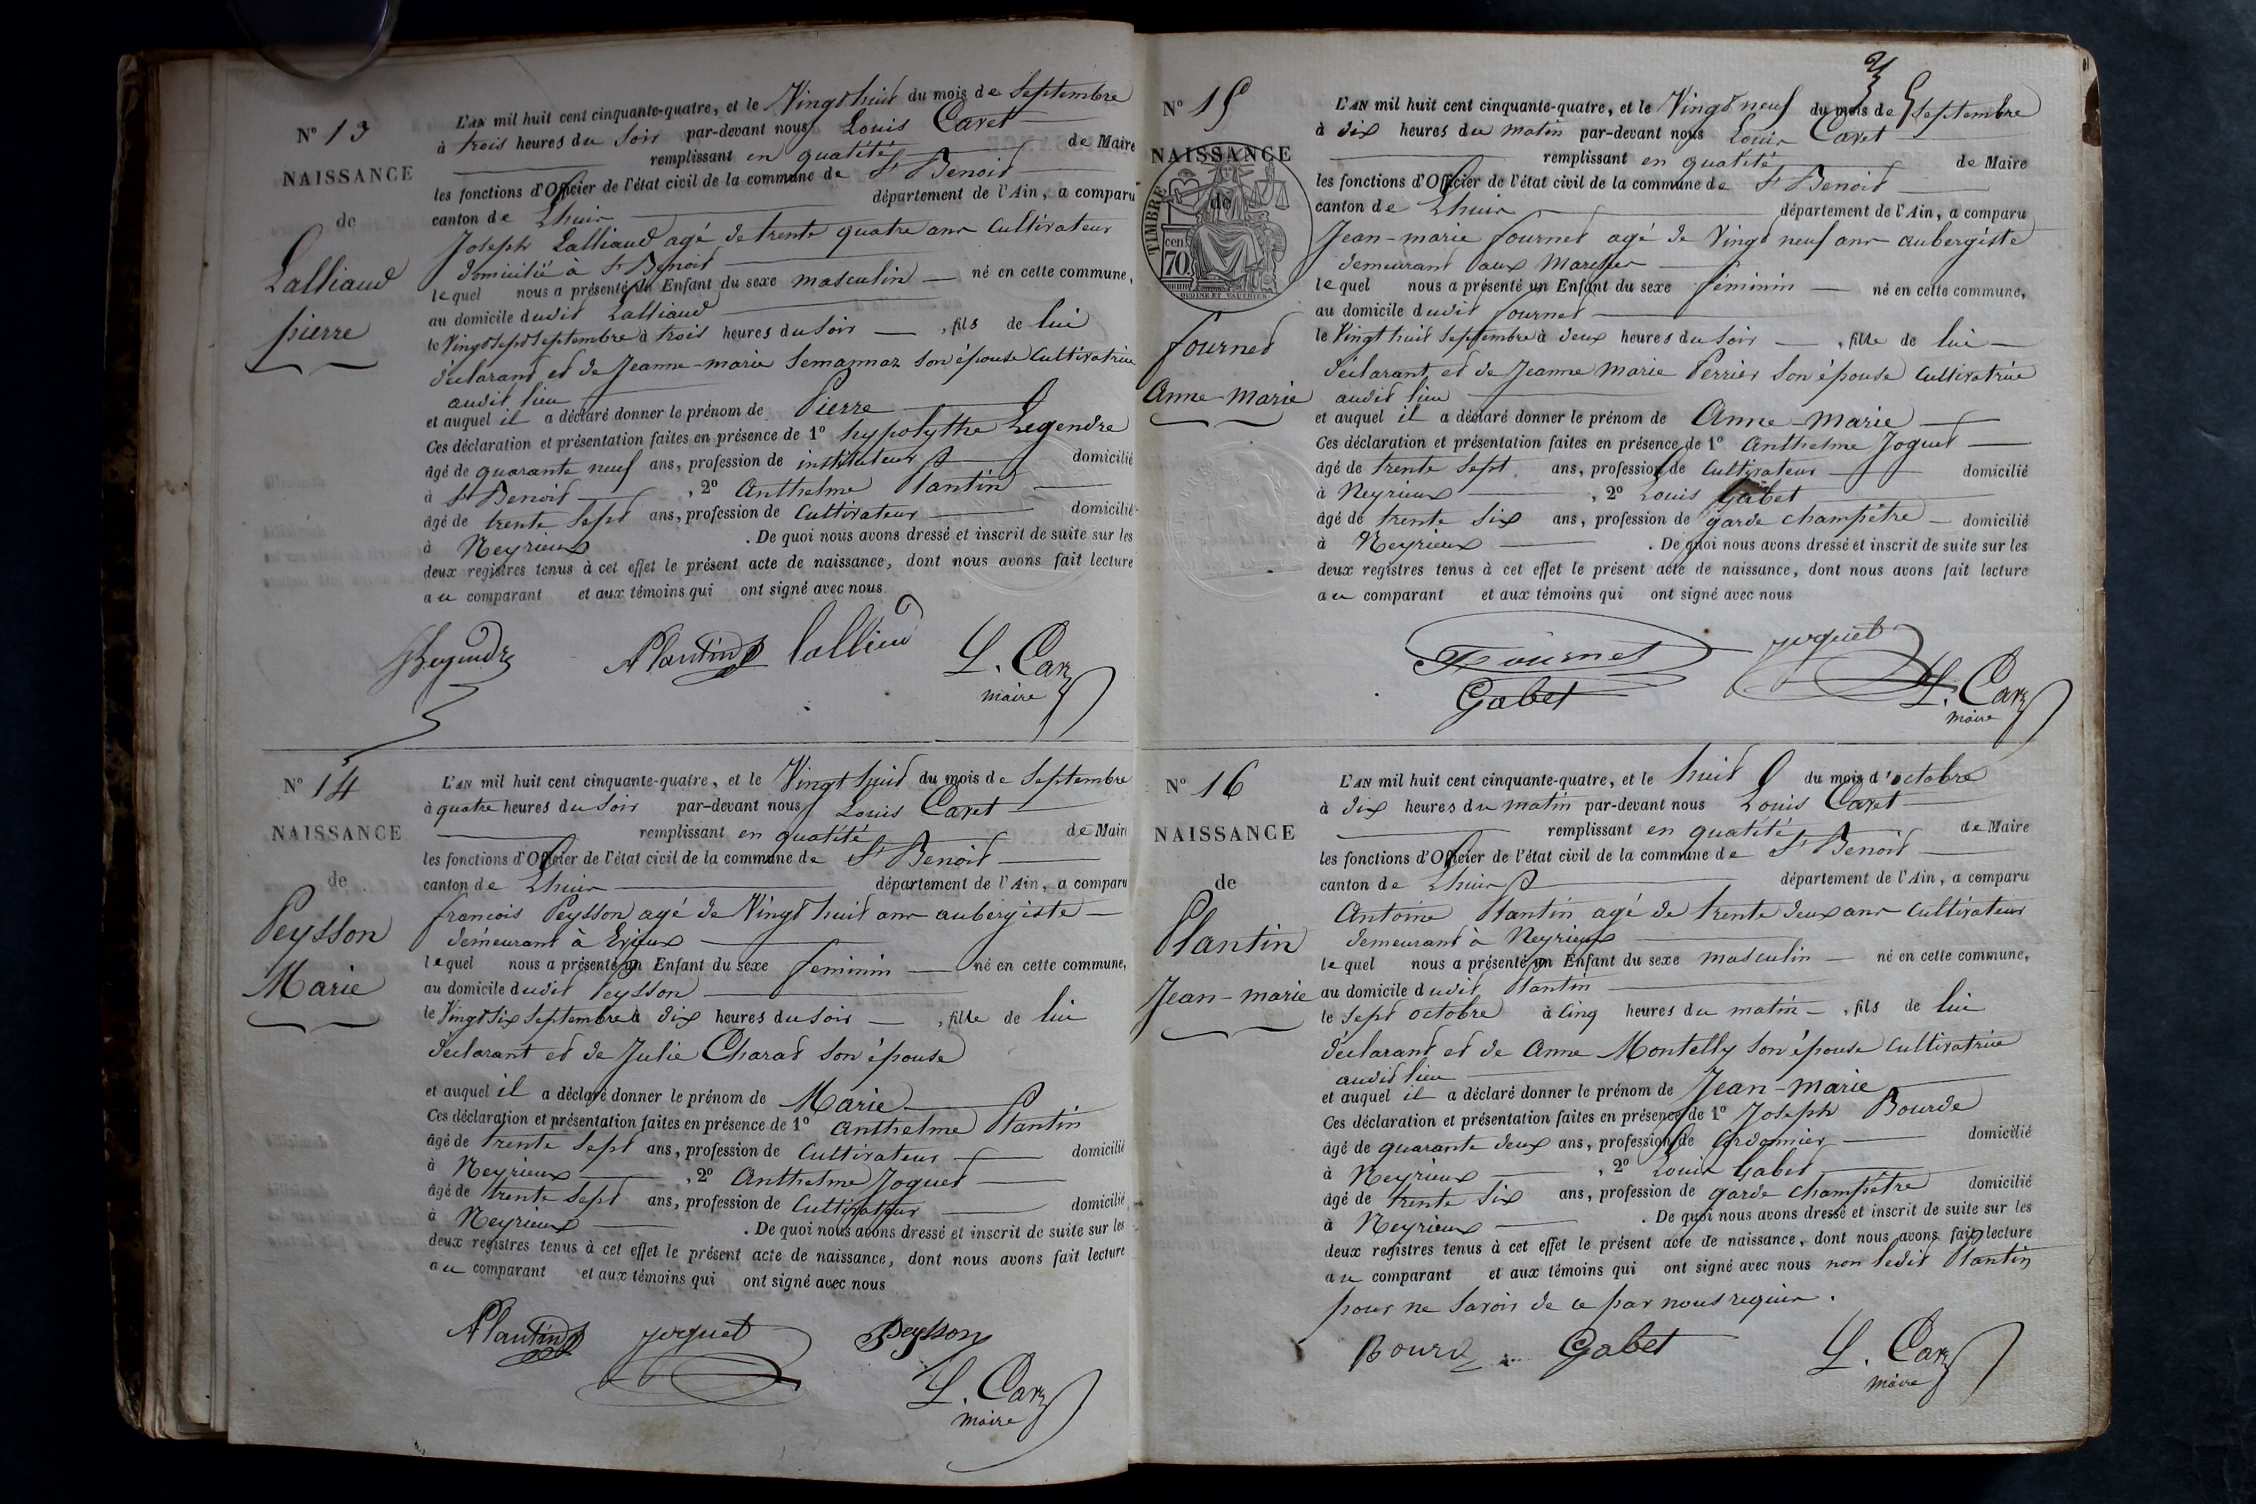 N° 13
NAISSANCE
de
Lalliaud
pierre
L'AN mil huit cent cinquante-quatre, et le Vingt huit du mois de Septembre
à trois heures du Soir par-devant nous Louis Caret
remplissant en qualité de Maire
les fonctions d'Officier de l'état civil de la commune de St Benoit
canton de Lhuis département de l'Ain, a comparu
Joseph Lalliaud agé de trente quatre ans Cultivateur
domicilié à St Benoit
lequel nous a présenté un Enfant du sexe masculin né en cette commune,
au domicile dudit Lalliaud
le Vingt sept Septembre à trois heures du Soir, fils de lui
déclarant et de Jeanne-marie Semaznaz son épouse Cultivatrice
audit lieu
et auquel il a déclaré donner le prénom de Pierre
Ces déclaration et présentation faites en présence de 1° hypolythe Legendre
âgé de quarante neuf ans, profession de instituteur domicilié
à St Benoit, 2° Anthelme Plantin
âgé de trente Sept ans, profession de Cultivateur domicilié
à Neyrieux. De quoi nous avons dressé et inscrit de suite sur les
deux registres tenus à cet effet le présent acte de naissance, dont nous avons fait lecture
au comparant et aux témoins qui ont signé avec nous
Legendre APlantin lalliaud L. Caret
maire
N° 14
NAISSANCE
de
Peysson
Marie
L'AN mil huit cent cinquante-quatre, et le Vingt huit du mois de Septembre
à quatre heures du Soir par-devant nous Louis Caret
remplissant en qualité de Maire
les fonctions d'Officier de l'état civil de la commune de St Benoit
canton de Lhuis département de l'Ain, a comparu
francois Peysson agé de Vingt huit ans aubergiste
demeurant à Evieux
lequel nous a présenté un Enfant du sexe feminin né en cette commune,
au domicile dudit Peysson
le Vingt Six Septembre à dix heures du Soir, fille de lui
déclarant et de Julie Charat Son épouse
et auquel il a déclaré donner le prénom de Marie
Ces déclaration et présentation faites en présence de 1° Anthelme Plantin
âgé de trente Sept ans, profession de Cultivateur domicilié
à Neyrieux, 2° Anthelme Joguet
âgé de trente Sept ans, profession de Cultivateur domicilié
à Neyrieux. De quoi nous avons dressé et inscrit de suite sur les
deux registres tenus à cet effet le présent acte de naissance, dont nous avons fait lecture
au comparant et aux témoins qui ont signé avec nous
APlantin joguet Peysson
L. Caret
maire
N° 15
NAISSANCE
de
TIMBRE
cen. 70
fournet
Anne-Marie
L'AN mil huit cent cinquante-quatre, et le Vingt neuf du mois de Septembre
à dix heures du matin par-devant nous Louis Caret
remplissant en qualité de Maire
les fonctions d'Officier de l'état civil de la commune de St Benoit
canton de Lhuis département de l'Ain, a comparu
Jean-marie fournet agé de Vingt neuf ans aubergiste
demeurant aux
lequel nous a présenté un Enfant du sexe féminin né en cette commune,
au domicile dudit fournet
le Vingt huit Septembre à deux heures du Soir, fille de lui
déclarant et de Jeanne Marie Perrier Son épouse Cultivatrice
audit lieu
et auquel il a déclaré donner le prénom de Anne-Marie
Ces déclaration et présentation faites en présence de 1° Anthelme Joguet
âgé de trente Sept ans, profession de Cultivateur domicilié
à Neyrieux, 2° Louis Gabet
âgé de trente Six ans, profession de garde champêtre domicilié
à Neyrieux. De quoi nous avons dressé et inscrit de suite sur les
deux registres tenus à cet effet le présent acte de naissance, dont nous avons fait lecture
au comparant et aux témoins qui ont signé avec nous
Fournet joguet
Gabet L. Caret
maire
N° 16
NAISSANCE
de
Plantin
Jean-marie
L'AN mil huit cent cinquante-quatre, et le huit du mois d'octobre
à dix heures du matin par-devant nous Louis Caret
remplissant en qualité de Maire
les fonctions d'Officier de l'état civil de la commune de St Benoit
canton de Lhuis département de l'Ain, a comparu
Antoine Plantin agé de trente deux ans Cultivateur
demeurant à Neyrieux
lequel nous a présenté un Enfant du sexe masculin né en cette commune,
au domicile dudit Plantin
le Sept octobre à Cinq heures du matin, fils de lui
déclarant et de Anne Montelly Son épouse Cultivatrice
audit lieu
et auquel il a déclaré donner le prénom de Jean-marie
Ces déclaration et présentation faites en présence de 1° Joseph Bourde
âgé de quarante deux ans, profession de Cordonnier domicilié
à Neyrieux, 2° Louis Gabet
âgé de trente Six ans, profession de garde champêtre domicilié
à Neyrieux. De quoi nous avons dressé et inscrit de suite sur les
deux registres tenus à cet effet le présent acte de naissance, dont nous avons fait lecture
au comparant et aux témoins qui ont signé avec nous non ledit Plantin
pour ne Savoir de ce par nous requis.
Bourde Gabet L. Caret
maire